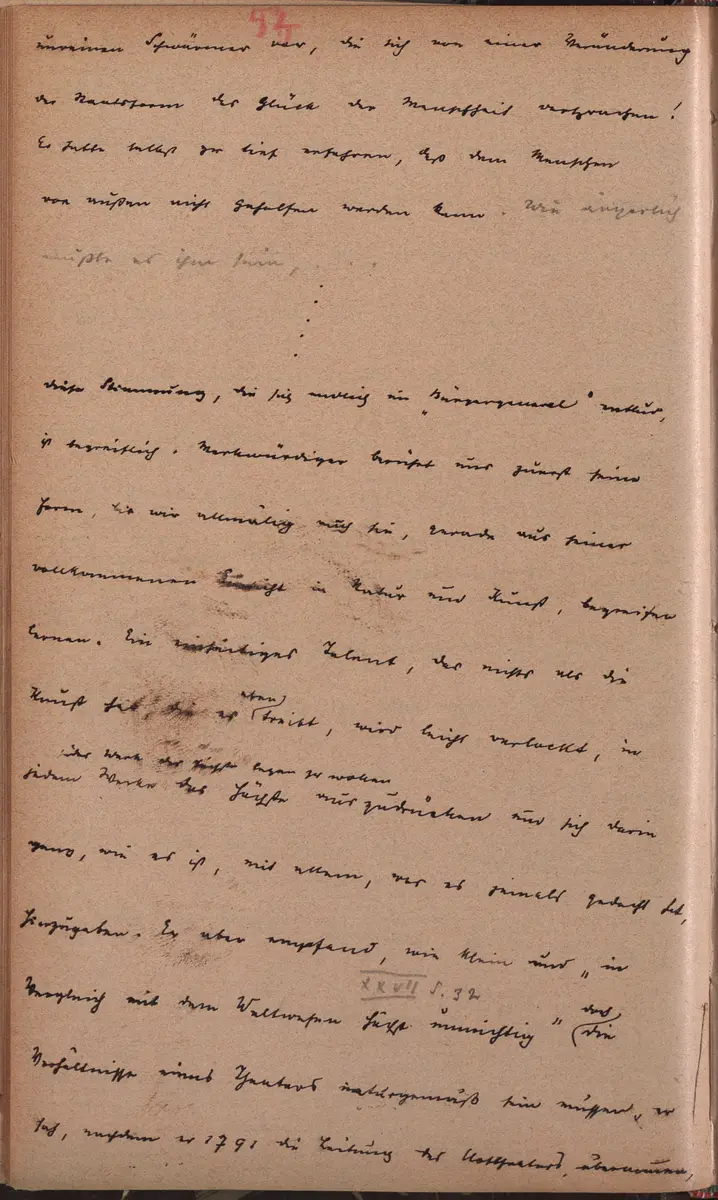 unreinen Schwärmer vor, die sich von einer Veränderung
der Staatsform das Glück der Menschheit versprachen!
Er hatte selbst zu tief erfahren, daß dem Menschen
von außen nicht geholfen werden kann. Wie ärgerlich
mußte es ihm sein, . . . .
diese Stimmung, die sich endlich im „Bürgergeneral" entlud,
ist begreiflich. Merkwürdiger berührt uns zuerst seine
Form, bis wir allmälig auch sie, gerade aus seiner
vollkommenen Einsicht in Natur und Kunst, begreifen
lernen. Ein einseitiges Talent, das nichts als die
Kunst hat, die es eben treibt, wird leicht verlockt, in
jedes Werk das Höchste legen zu wollen
jedem Werke das Höchste auszudrücken und sich darin
ganz, wie es ist, mit allem, was es jemals gedacht hat,
hinzugeben. Er aber empfand, wie klein und „in
XXVII S. 32
Vergleich mit dem Weltwesen höchst unwichtig" doch die
Verhältnisse eines Theaters naturgemäß sein müssen, er
sah, nachdem er 1791 die Leitung des Hoftheaters übernommen,